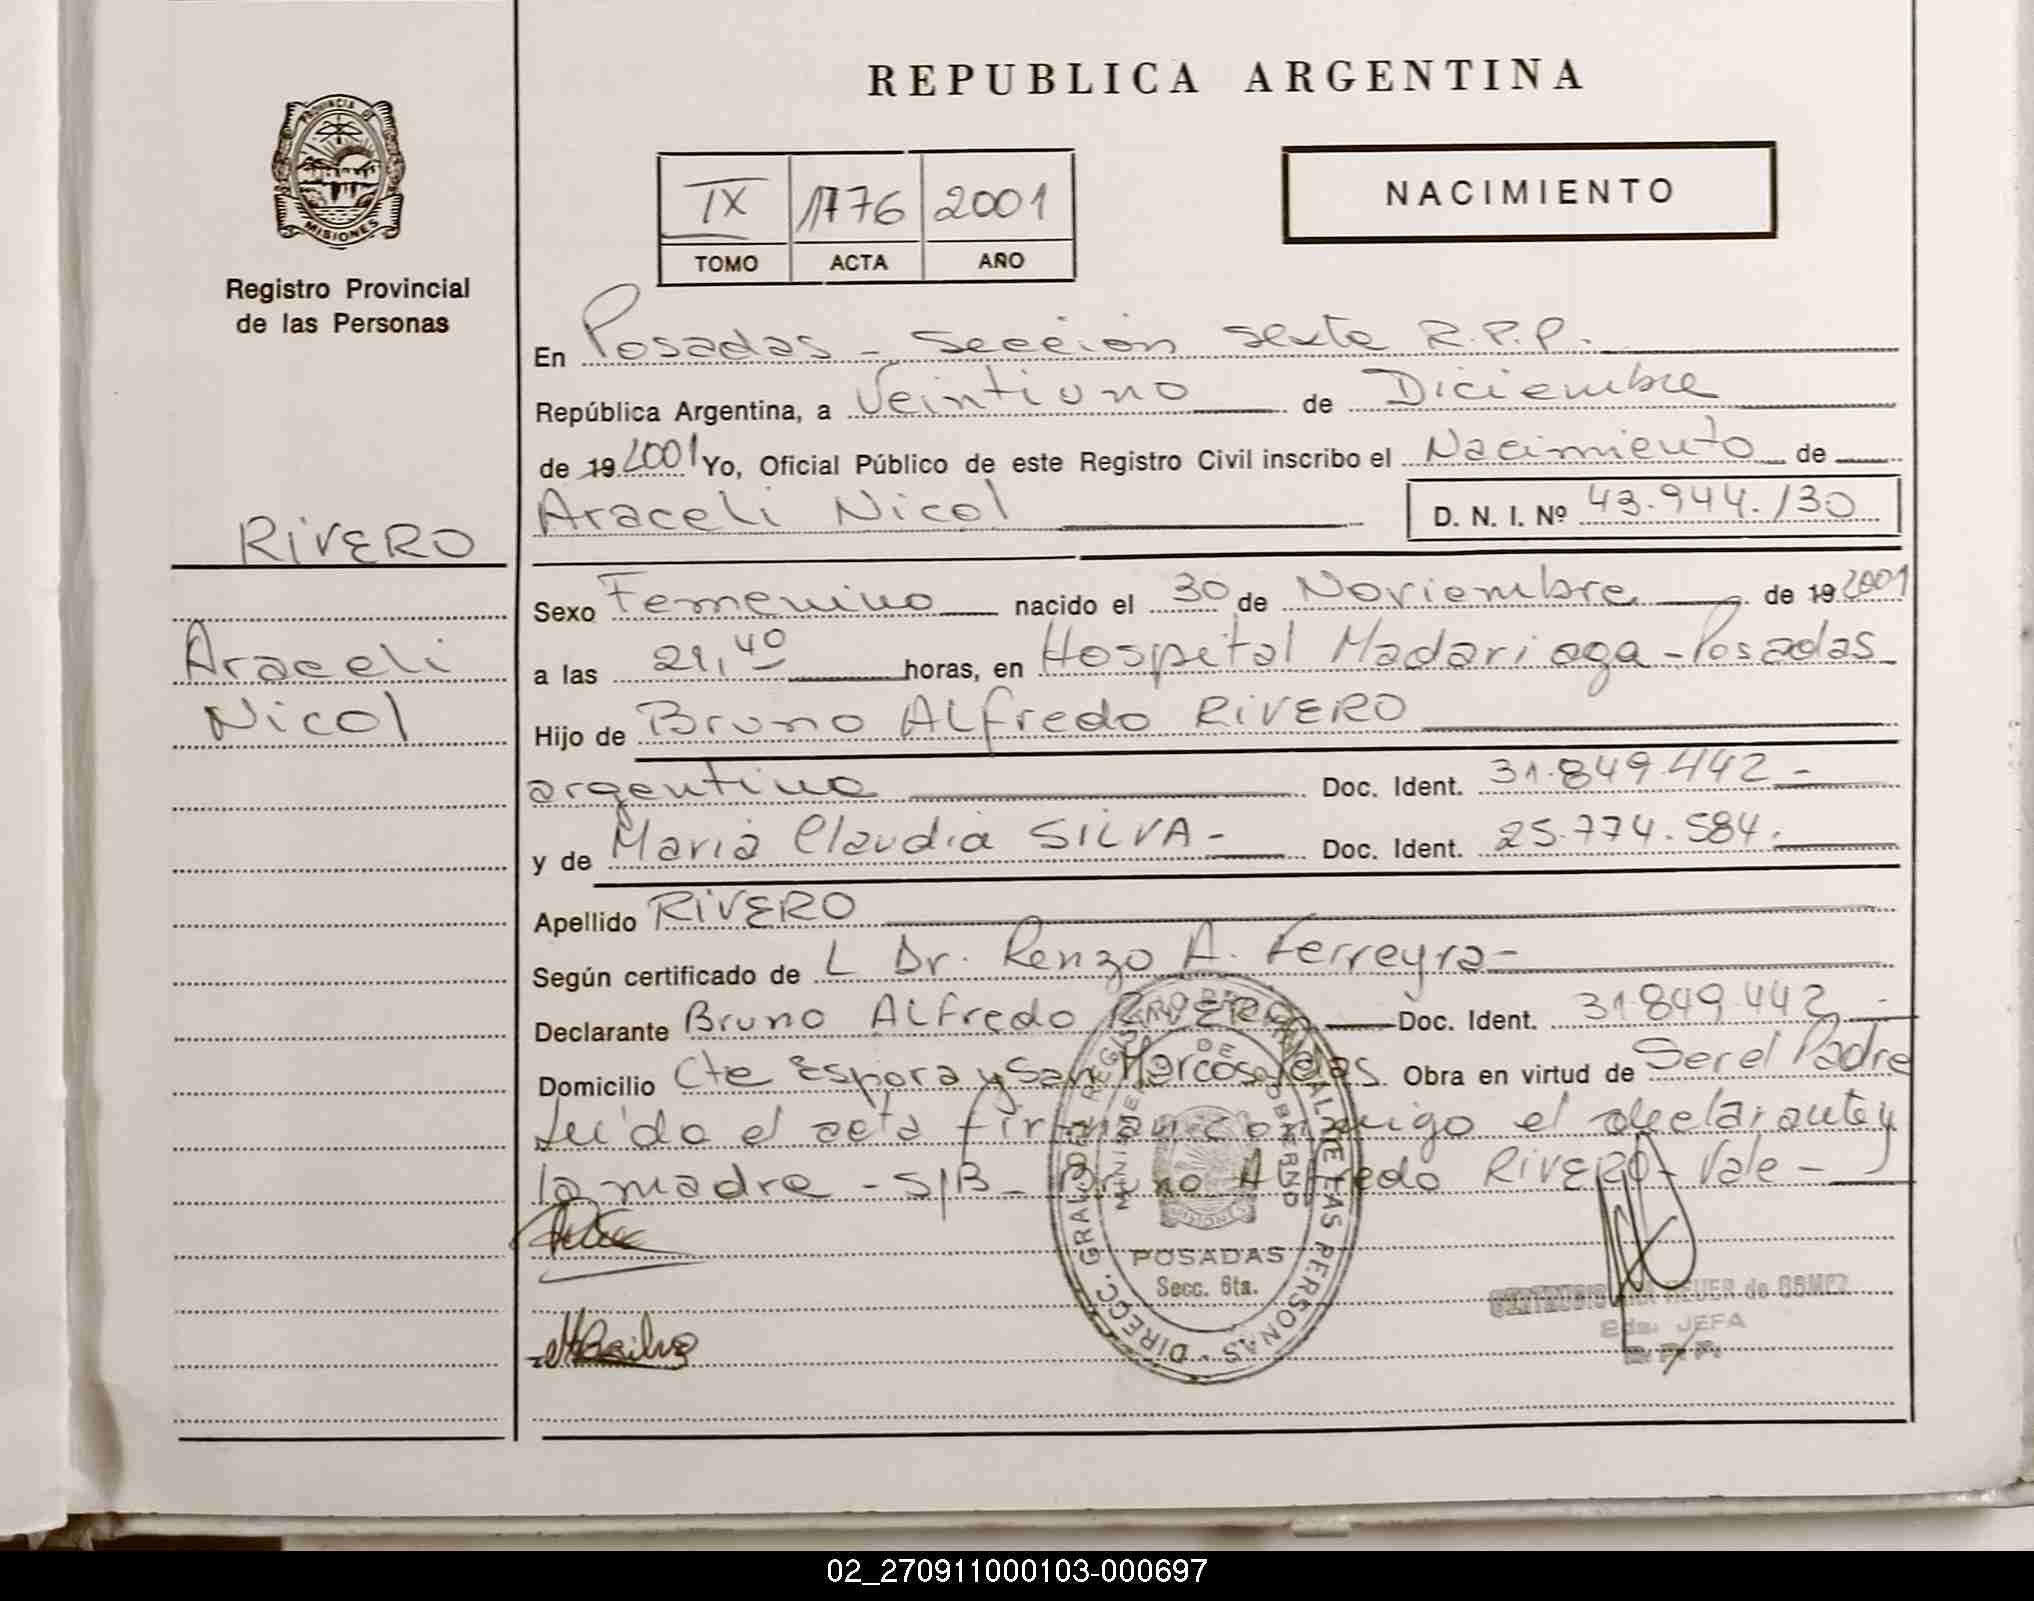 REPUBLICA ARGENTINA
PROVINCIA DE
MISIONES
Registro Provincial
de las Personas
IX 1776 2001
TOMO ACTA AÑO
NACIMIENTO
En Posadas - Sección Sexta R.P.P.
República Argentina, a Veintiuno de Diciembre
de 19 2001 Yo, Oficial Público de este Registro Civil inscribo el Nacimiento de
Araceli Nicol
D. N. I. Nº 43.944.130
RIVERO
Araceli
Nicol
Sexo Femenino nacido el 30 de Noviembre de 19 2001
a las 21,40 horas, en Hospital Madariaga - Posadas
Hijo de Bruno Alfredo RIVERO
argentino Doc. Ident. 31.849.442 -
y de Maria Claudia SILVA - Doc. Ident. 25.774.584.
Apellido RIVERO
Según certificado de L Dr. Renzo A. Ferreyra -
Declarante Bruno Alfredo RIVERO Doc. Ident. 31849.442 -
Domicilio Cte Espora y San Marcos Pdas. Obra en virtud de Ser el Padre
Leído el acta firman conmigo el declarante y
la madre - S/B - Bruno Alfredo RIVERO - Vale -
DIRECC. GRAL. DEL REGISTRO PROVINCIAL DE LAS PERSONAS
MINISTERIO DE GOBIERNO
MISIONES
POSADAS
Secc. 6ta.
JEFA
02_270911000103-000697